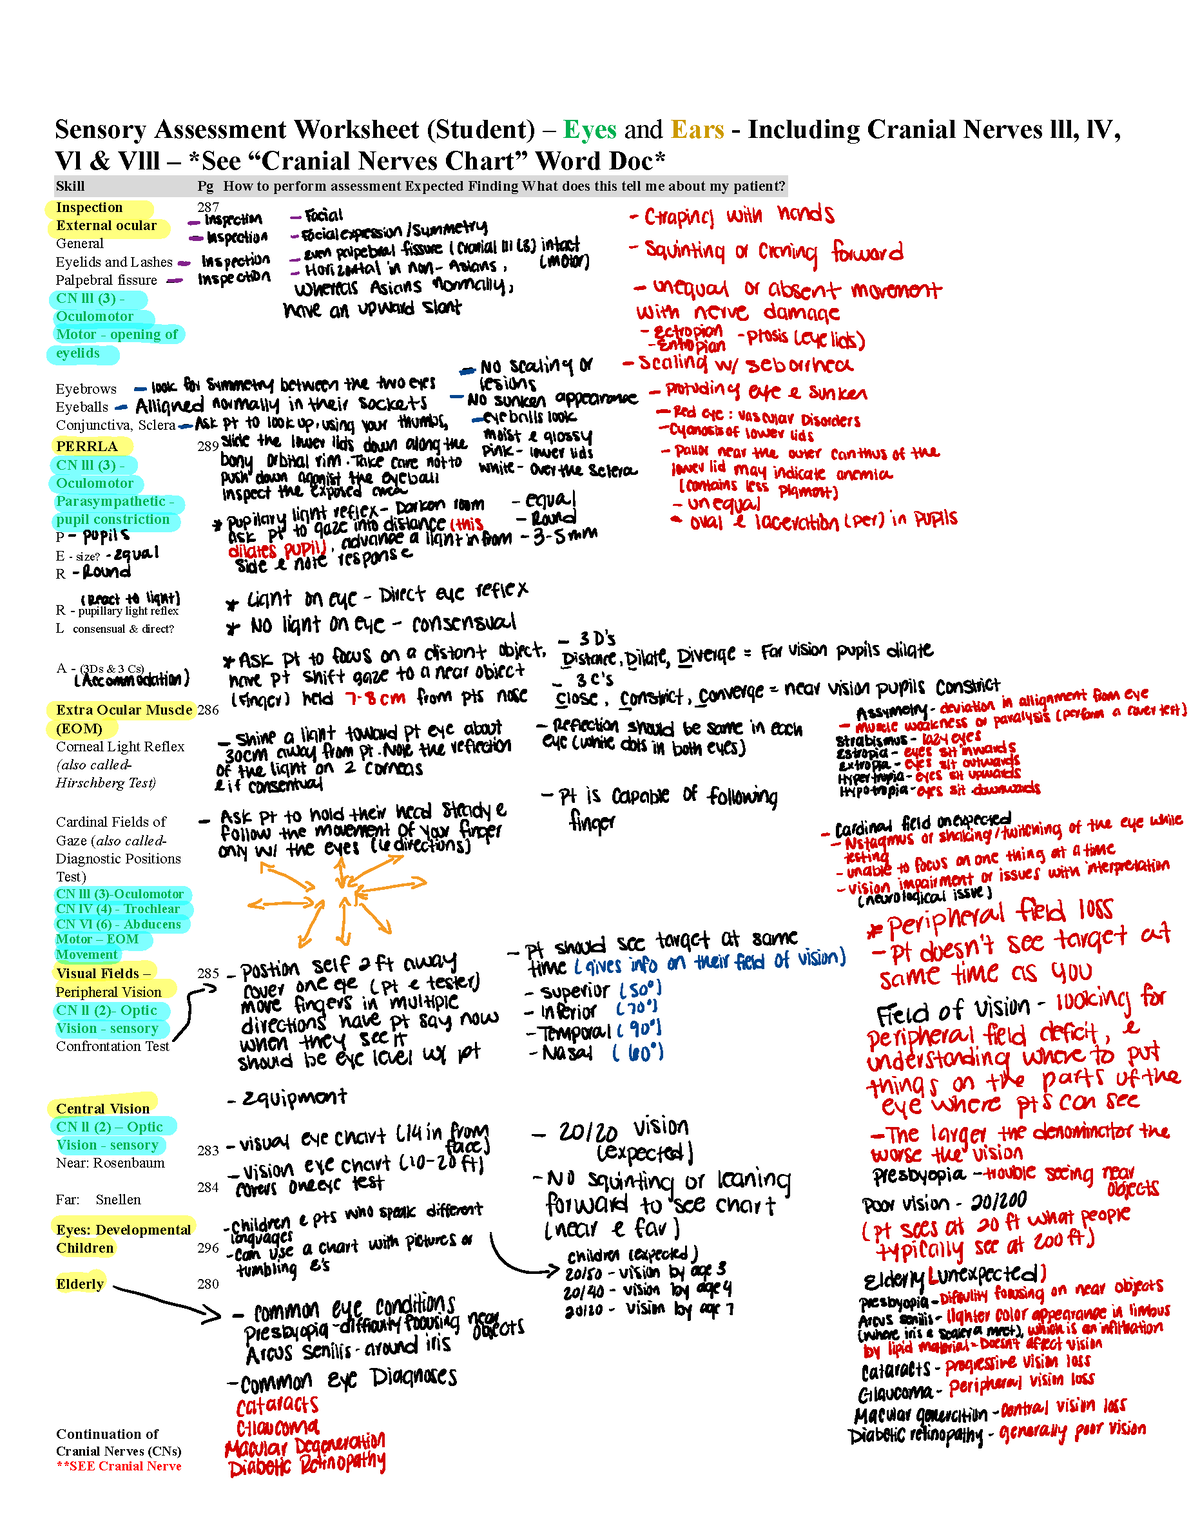 Sensory Assessment Worksheet (Student) – Eyes and Ears - Including Cranial Nerves lll, lV,
Vl & Vlll – *See “Cranial Nerves Chart” Word Doc*
Skill Pg How to perform assessment Expected Finding What does this tell me about my patient?
Inspection 287
External ocular - Inspection - Facial
General - Inspection - Facial expression/Symmetry
Eyelids and Lashes - Inspection - even palpebral fissure (Cranial III (3) intact
(motor)
Palpebral fissure - Inspection - Horizontal in non-Asians,
whereas Asians normally,
have an upward slant
- Squinting or craning forward
- unequal or absent movement
with nerve damage
- Ectropion - ptosis (eye lids)
- Entropian
- Scaling w/ seborrhea
CN lll (3) -
Oculomotor
Motor - opening of
eyelids
Eyebrows - look for symmetry between the two eyes
- No scaling or
lesions
Eyeballs - Alligned normally in their sockets
- No sunken appearance
- protuding eye & sunken
Conjunctiva, Sclera - Ask pt to look up, using your thumbs,
slide the lower lids down along the
bony orbital rim. Take care not to
push down against the eyeball
inspect the exposed area
- eyeballs look
moist & glossy
pink - lower lids
white - over the sclera
- Red eye: vascular Disorders
- Cyanosis of lower lids
- pallor near the outer canthus of the
lower lid may indicate anemia
(contains less pigment)
- unequal
- oval & laceration (per) in pupils
PERRLA 289
CN lll (3) -
Oculomotor
Parasympathetic -
pupil constriction
P - pupils
E - size? - equal
R - Round
(React to light)
R - pupillary light reflex
L consensual & direct?
* pupilary light reflex - Darken room
ask pt to gaze into distance (this
dilates pupil), advance a light in from
side & note response
- equal
- Round
- 3-5mm
* Light on eye - Direct eye reflex
* NO light on eye - consensual
A - (3Ds & 3 Cs)
(Accommodation)
* Ask pt to focus on a distant object,
have pt shift gaze to a near object
(finger) held 7-8cm from pts nose
- 3 D's
Distance, Dilate, Diverge = Far vision pupils dilate
- 3 C's
Close, Constrict, Converge = near vision pupils constrict
Extra Ocular Muscle 286
(EOM)
Corneal Light Reflex
(also called-
Hirschberg Test)
- Shine a light toward pt eye about
30cm away from pt. Note the reflection
of the light on 2 corneas
& if consentual
- Reflection should be same in each
eye (white dots in both eyes)
Assymetry - deviation in allignment from eye
- muscle weakness or paralysis (perform a cover test)
Strabismus - lazy eyes
Estropia - eyes sit inwards
extropia - eyes sit outwards
Hypertropia - eyes sit upwards
Hypotropia - eyes sit downwards
Cardinal Fields of
Gaze (also called-
Diagnostic Positions
Test)
CN lll (3)-Oculomotor
CN lV (4) - Trochlear
CN Vl (6) - Abducens
Motor – EOM
Movement
- Ask pt to hold their head steady &
follow the movement of your finger
only w/ the eyes (6 directions)
- Pt is capable of following
finger
Cardinal field unexpected
- Nstagmus or shaking/twitching of the eye while
testing
- unable to focus on one thing at a time
- vision impairment or issues with interpretation
(neurological issue)
* Peripheral field loss
- Pt doesn't see target at
same time as you
Visual Fields – 285
Peripheral Vision
CN ll (2)- Optic
Vision - sensory
Confrontation Test
- Postion self 2ft away
cover one eye (pt & tester)
move fingers in multiple
directions have pt say now
when they see it
should be eye level w/ pt
- Pt should see target at same
time (gives info on their field of vision)
- Superior (50°)
- Inferior (70°)
- Temporal (90°)
- Nasal (60°)
Field of vision - looking for
peripheral field deficit, &
understanding where to put
things on the parts of the
eye where pts can see
- Equipment
Central Vision
CN ll (2) – Optic
Vision - sensory
Near: Rosenbaum 283
Far: Snellen 284
- visual eye chart (14in from
face)
- Vision eye chart (10-20ft)
covers one eye test
- 20/20 vision
(expected)
- NO squinting or leaning
forward to see chart
(near & far)
- The larger the denominator the
worse the vision
Presbyopia - trouble seeing near
objects
Poor vision - 20/200
(pt sees at 20 ft what people
typically see at 200ft)
Eyes: Developmental
Children 296
- Children & pts who speak different
languages
- Can use a chart with pictures or
tumbling E's
children (expected)
20/50 - vision by age 3
20/40 - vision by age 4
20/20 - vision by age 7
Elderly 280
- common eye conditions
Presbyopia - difficulty focusing near
objects
Arcus senilis - around iris
- Common Eye Diagnoses
Cataracts
Glaucoma
Macular Degeneration
Diabetic Retinopathy
Elderly (unexpected)
Presbyopia - Difficulty focusing on near objects
Arcus senilis - lighter color appearance in limbus
(where iris & sclera meet), which is an infiltration
by lipid material - Doesn't affect vision
Cataracts - progressive vision loss
Glaucoma - Peripheral vision loss
Macular generation - central vision loss
Diabetic retinopathy - generally poor vision
Continuation of
Cranial Nerves (CNs)
**SEE Cranial Nerve